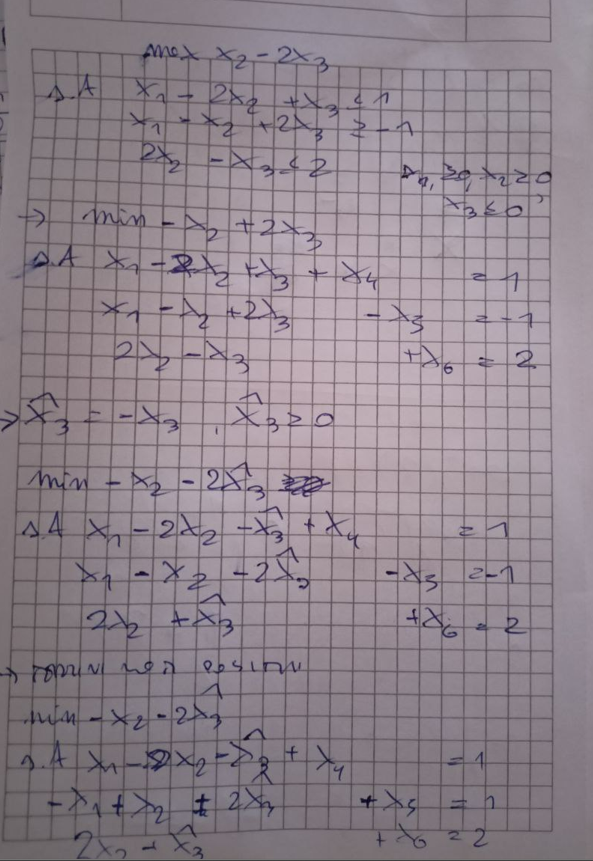 max x₂ - 2x₃
s.A x₁ - 2x₂ + x₃ ≤ 1
x₁ - x₂ + 2x₃ ≥ -1
2x₂ - x₃ ≤ 2 x₁, ≥0, x₂ ≥ 0
x₃ ≤ 0,
→ min - x₂ + 2x₃
s.A x₁ - 2x₂ + x₃ + x₄ = 1
x₁ - x₂ + 2x₃ - x₅ = -1
2x₂ - x₃ + x₆ = 2
→ x̂₃ = - x₃ , x̂₃ ≥ 0
min - x₂ - 2x̂₃
s.A x₁ - 2x₂ - x̂₃ + x₄ = 1
x₁ - x₂ - 2x̂₃ - x₅ = -1
2x₂ + x̂₃ + x₆ = 2
→
min - x₂ - 2x̂₃
s.A x₁ - 2x₂ - x̂₃ + x₄ = 1
- x₁ + x₂ + 2x̂₃ + x₅ = 1
2x₂ + x̂₃ + x₆ = 2